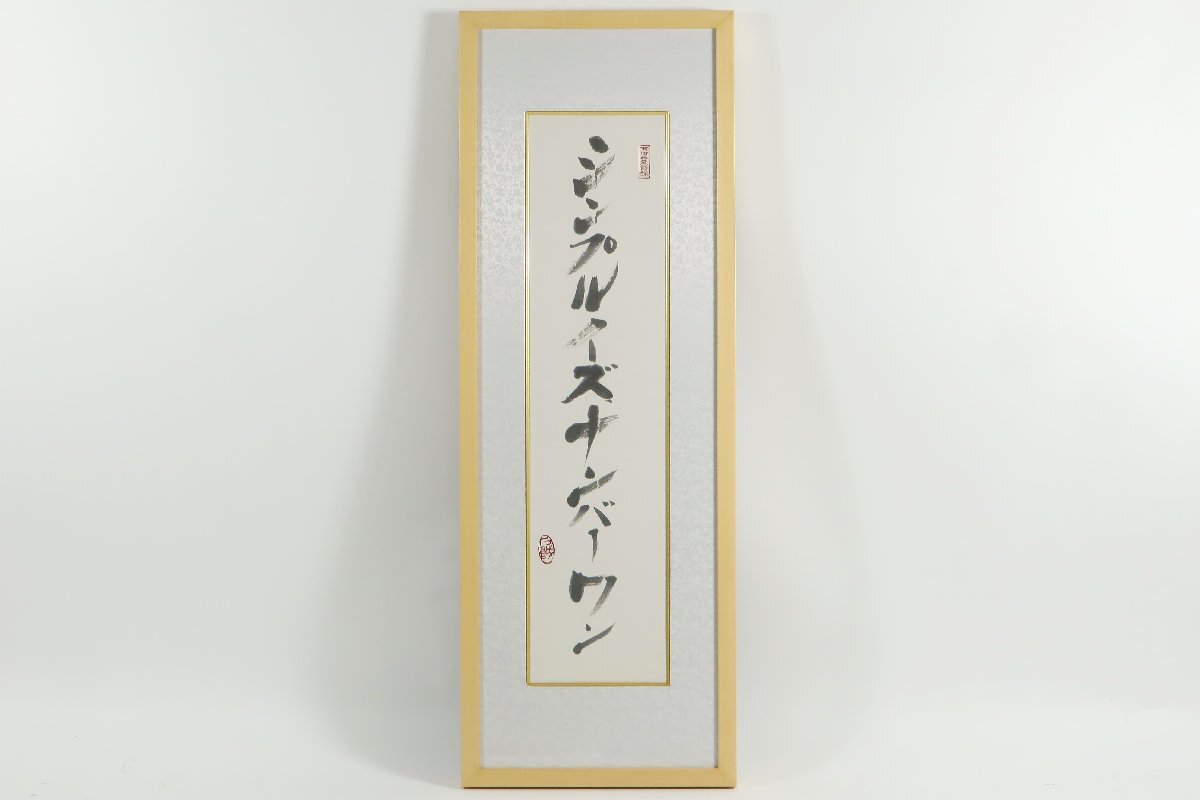 シンプルイーズナンバーワン